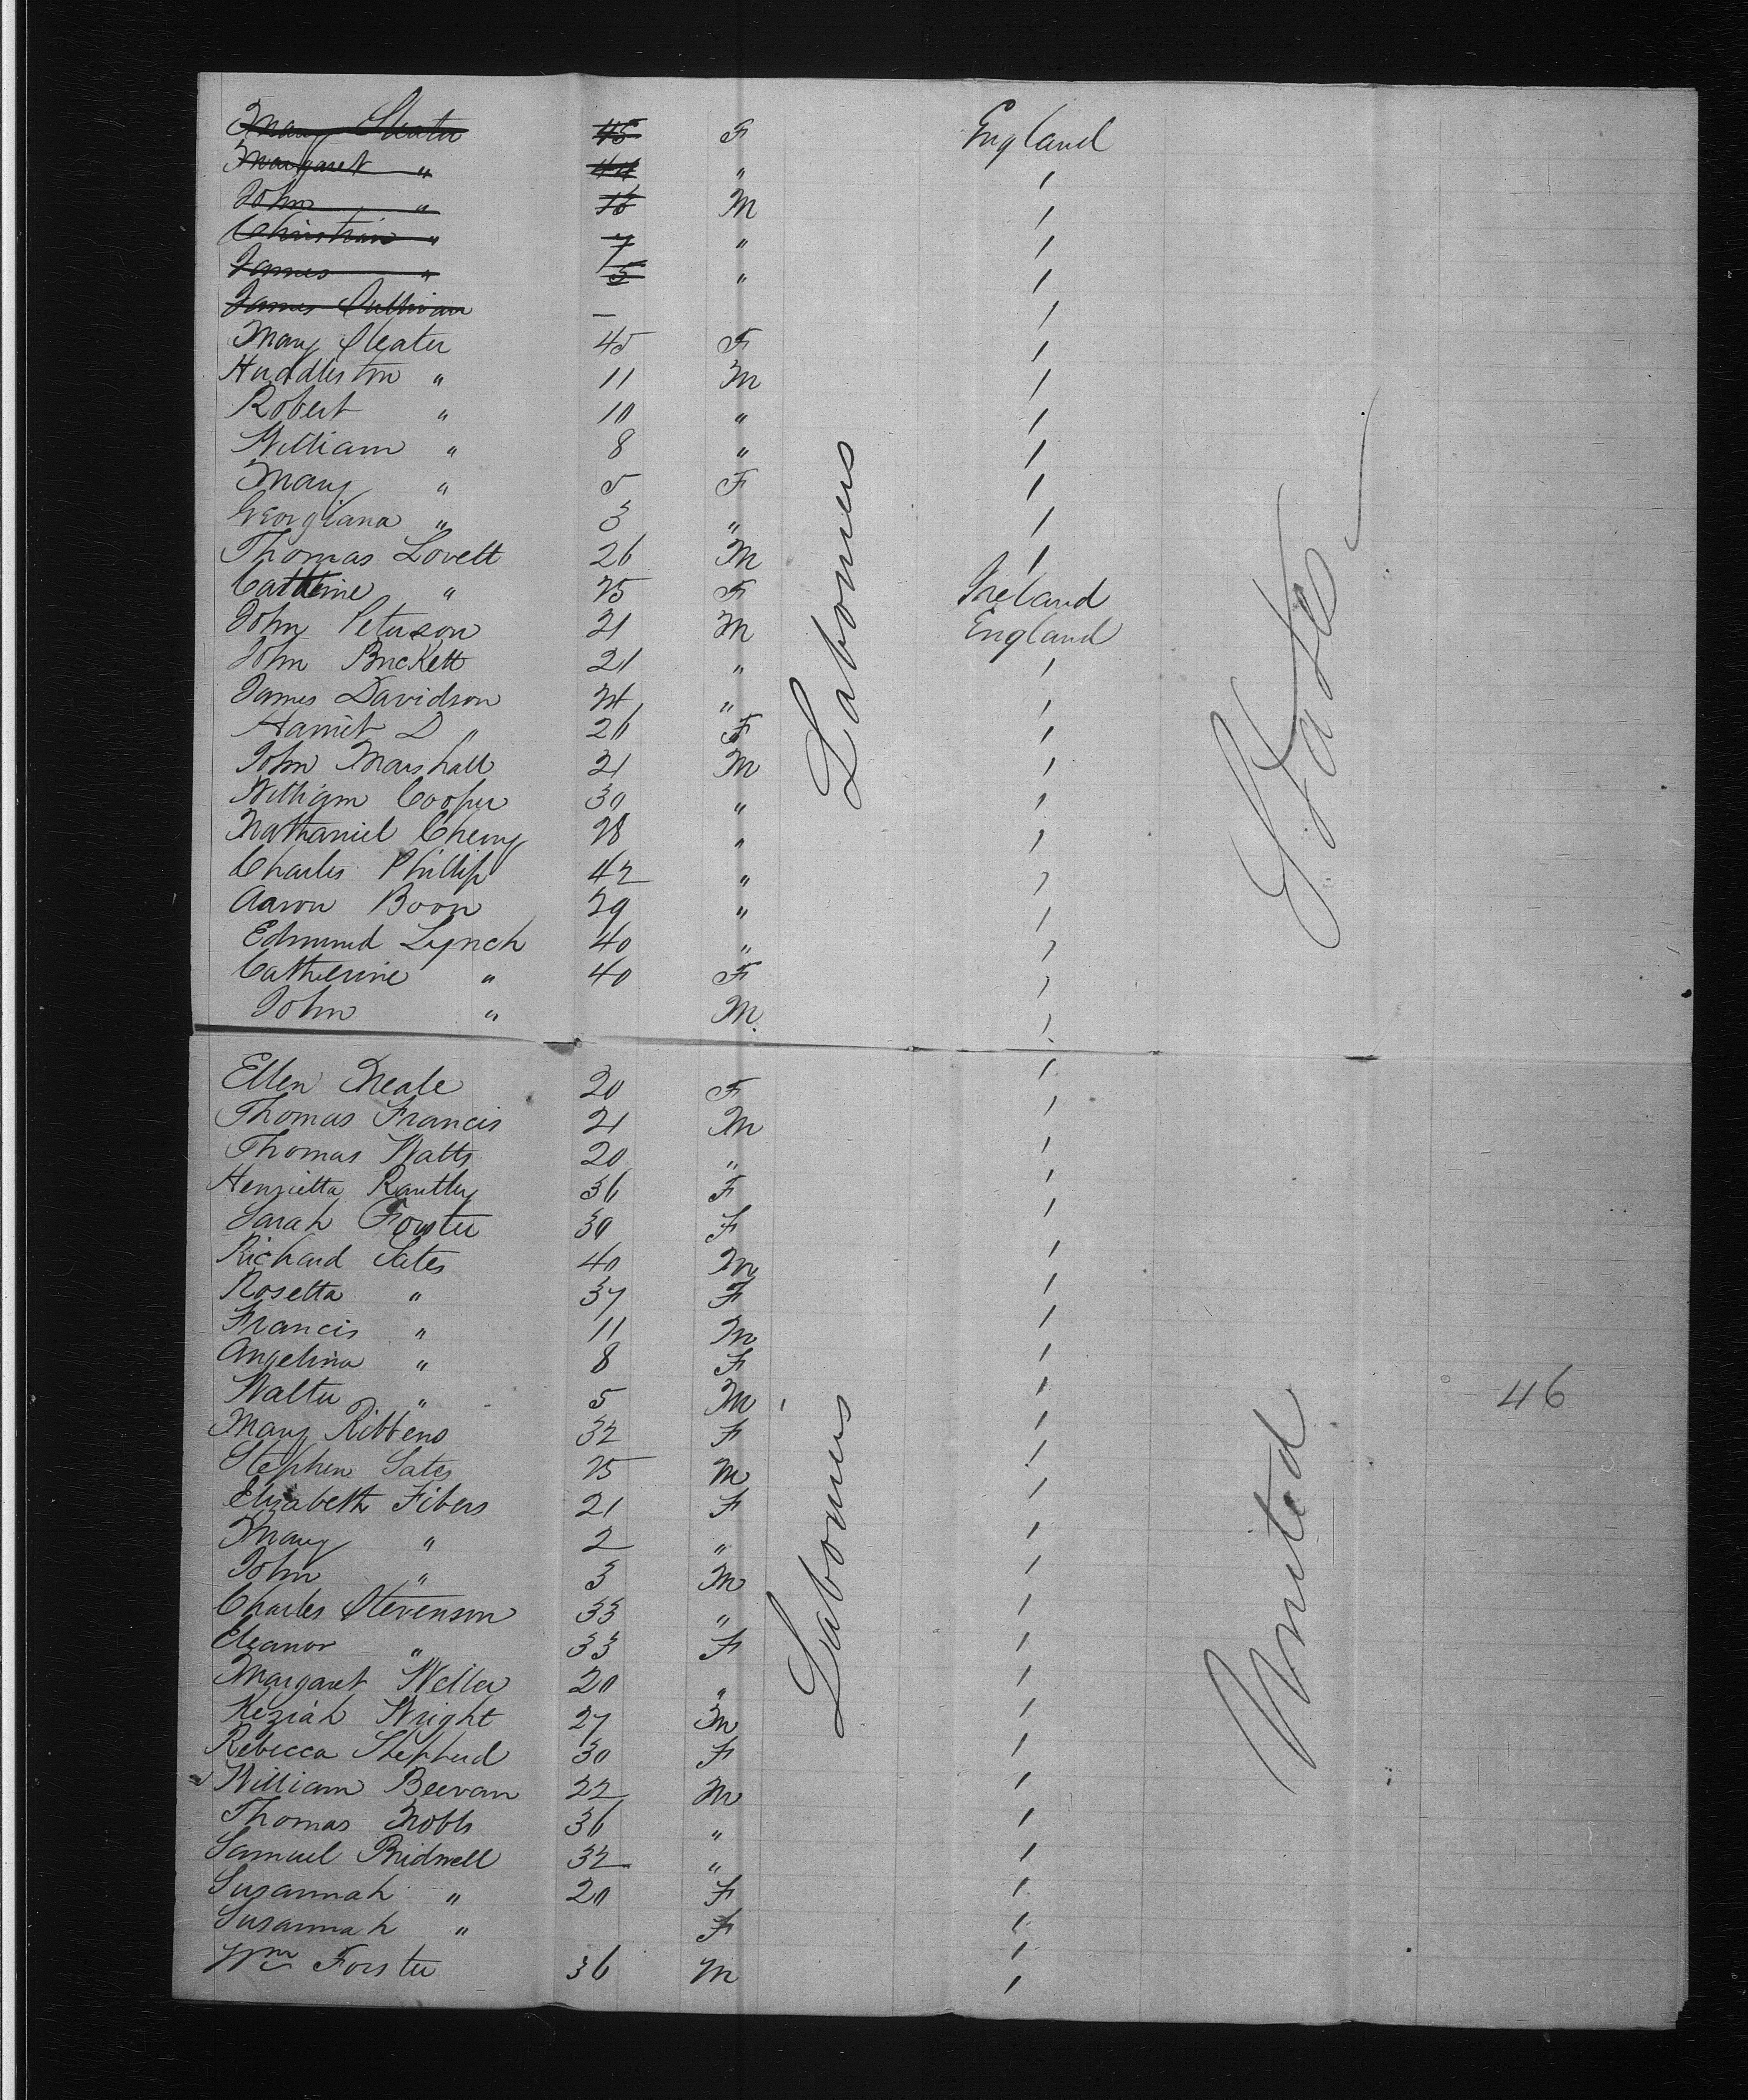 Mary Sleater 45 F England
Margaret " 44 "
John " 16 M
Christian " 7 "
James " 5 "
James Sullivan —
Mary Sleater 45 F
Huddleston " 11 M
Robert " 10 "
William " 8 "
Mary " 5 F
Georgiana " 3 "
Thomas Lovett 26 M
Catherine " 25 F Ireland
John Peterson 21 M England
John Brickett 21 "
James Davidson 24 "
Harriet D " 26 F
John Marshall 21 M
William Cooper 30 "
Nathaniel Cheony 28 "
Charles Phillip 42 "
Aaron Boon 29 "
Edmund Lynch 40 "
Catherine " 40 F
John " M
Labourers
States
Ellen Neale 20 F
Thomas Francis 21 M
Thomas Watts 20 "
Henrietta Rantley 36 F
Sarah Forster 30 F
Richard Sates 40 M
Rosetta " 37 F
Francis " 11 M
Angelina " 8 F
Walter " 5 M
Mary Ribbens 32 F
Stephen Sates 25 M
Elizabeth Fibers 21 F
Mary " 2 "
John " 3 M
Charles Stevenson 33 "
Eleanor " 33 F
Margaret Weller 20 "
Keziah Wright 27 M
Rebecca Shepherd 30 F
William Beevan 22 M
Thomas Nobbs 36 "
Samuel Bridwell 32 "
Susannah " 20 F
Susannah " F
Wm Forster 36 M
Labourers
United
46